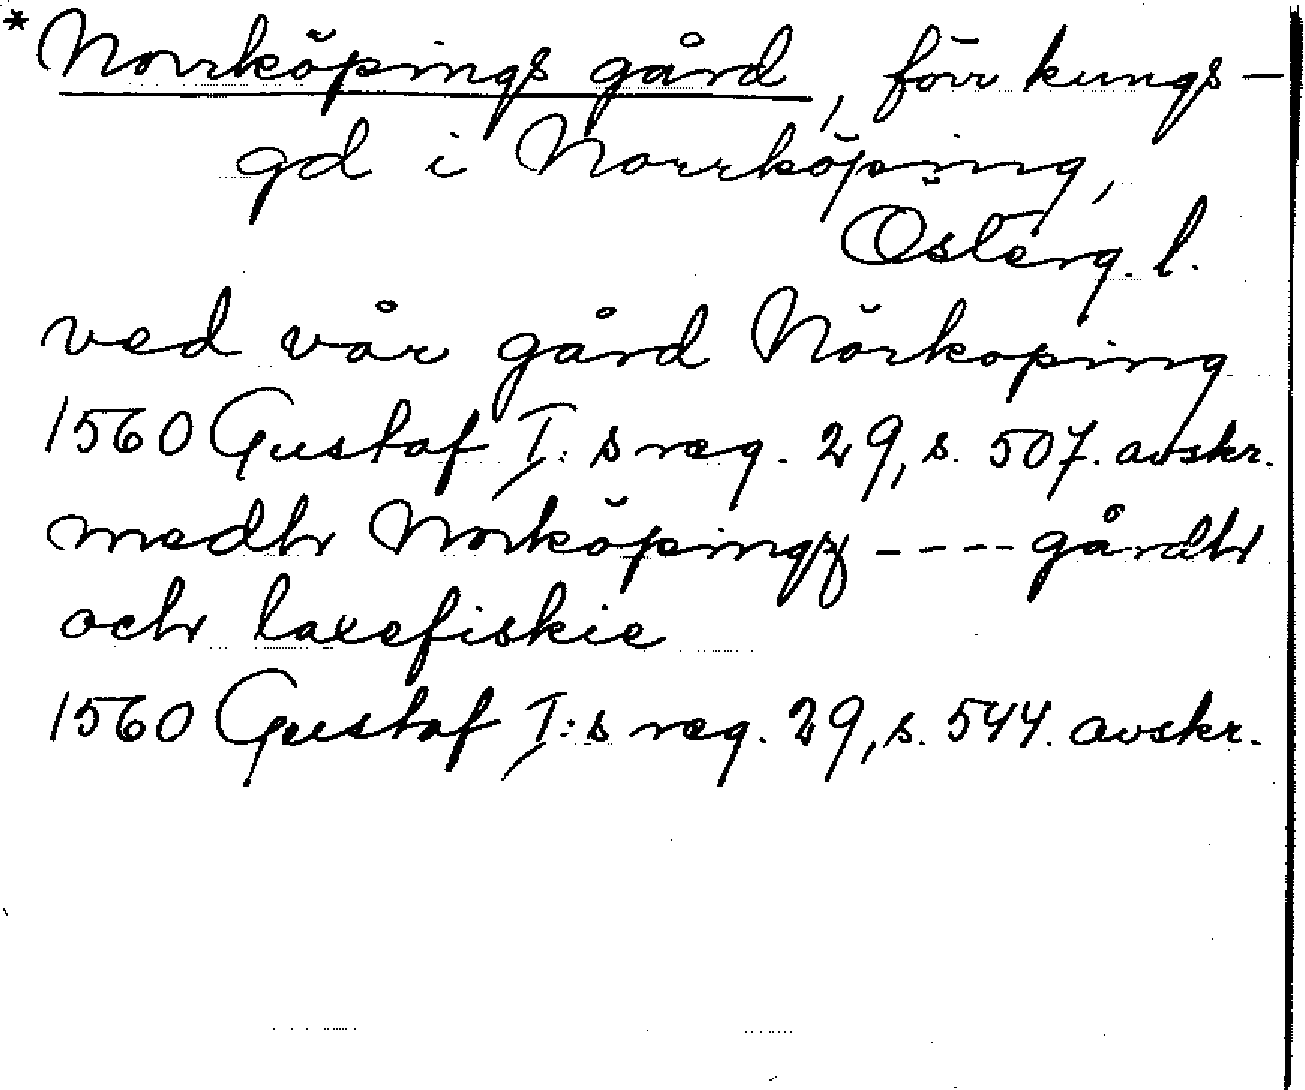 *Norrköpings gård, förr kungs-
gd i Norrköping,
Österg. l.
ved vår gård Nörkoping
1560 Gustaf I:s reg. 29, s. 507. avskr.
medh Norköpingz ---- gårdh
och laxefiskie
1560 Gustaf I:s reg. 29, s. 544. avskr.